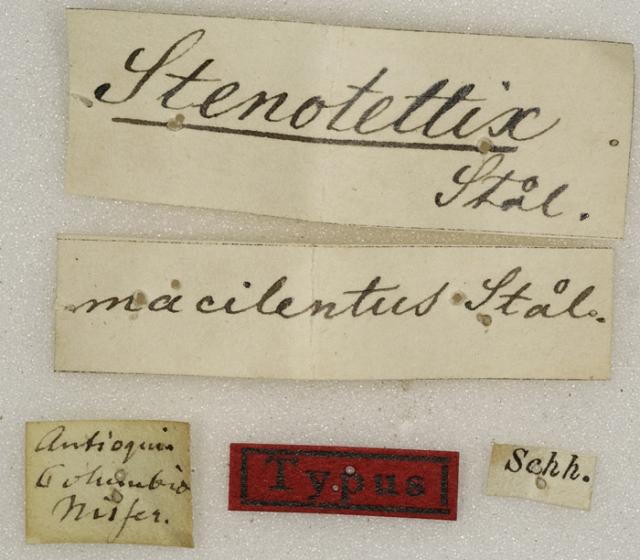 Stenotettix
Stål.
macilentus Stål.
Antioquia
Columbia
Nisser.
Typus
Schh.